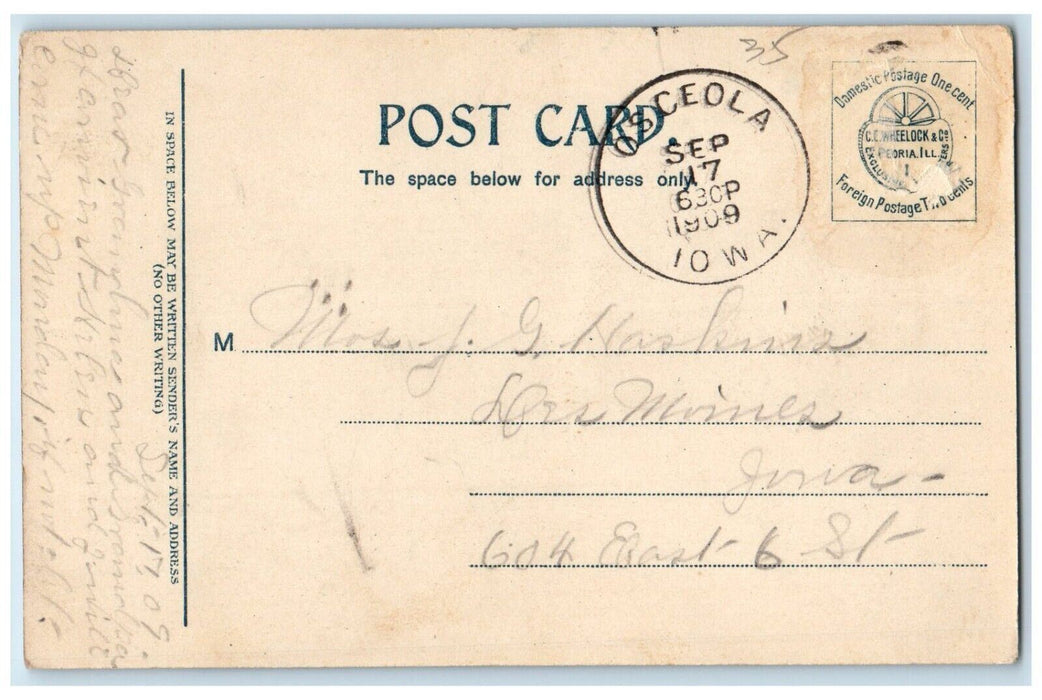 POST CARD
The space below for address only.
OSCEOLA
SEP
17
630P
1909
IOWA.
Domestic Postage One cent
C.E. WHEELOCK & Co
PEORIA, ILL.
Foreign Postage Two cents
M
Mrs J. G. Haskins
Des Moines
Iowa -
604 East 6 St
IN SPACE BELOW MAY BE WRITTEN SENDER'S NAME AND ADDRESS
(NO OTHER WRITING)
Sept 17, 09.
Dear and
and I will
come up Monday if
35